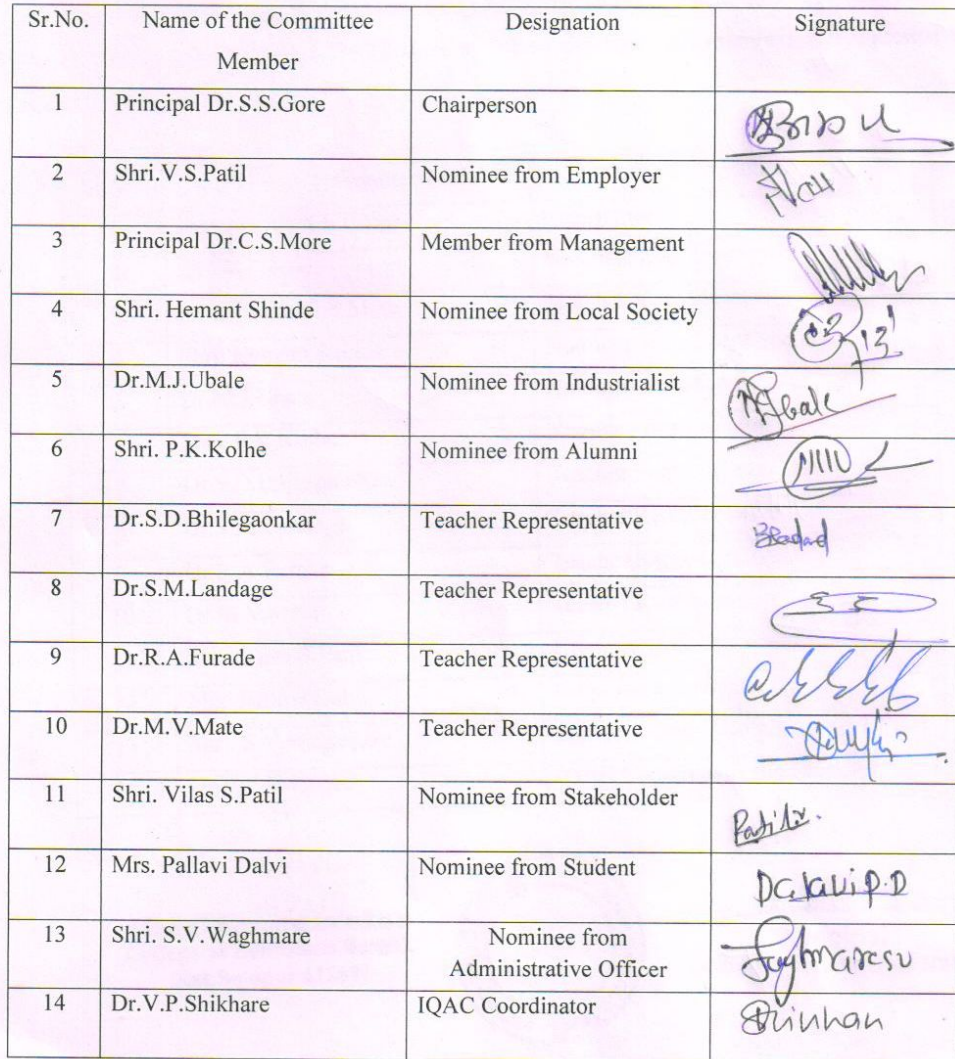 Sr.No. Name of the Committee Designation Signature
Member
1 Principal Dr.S.S.Gore Chairperson
2 Shri.V.S.Patil Nominee from Employer
3 Principal Dr.C.S.More Member from Management
4 Shri. Hemant Shinde Nominee from Local Society
5 Dr.M.J.Ubale Nominee from Industrialist
6 Shri. P.K.Kolhe Nominee from Alumni
7 Dr.S.D.Bhilegaonkar Teacher Representative
8 Dr.S.M.Landage Teacher Representative
9 Dr.R.A.Furade Teacher Representative
10 Dr.M.V.Mate Teacher Representative
11 Shri. Vilas S.Patil Nominee from Stakeholder
12 Mrs. Pallavi Dalvi Nominee from Student Dalavi P.D
13 Shri. S.V.Waghmare Nominee from
Administrative Officer
14 Dr.V.P.Shikhare IQAC Coordinator